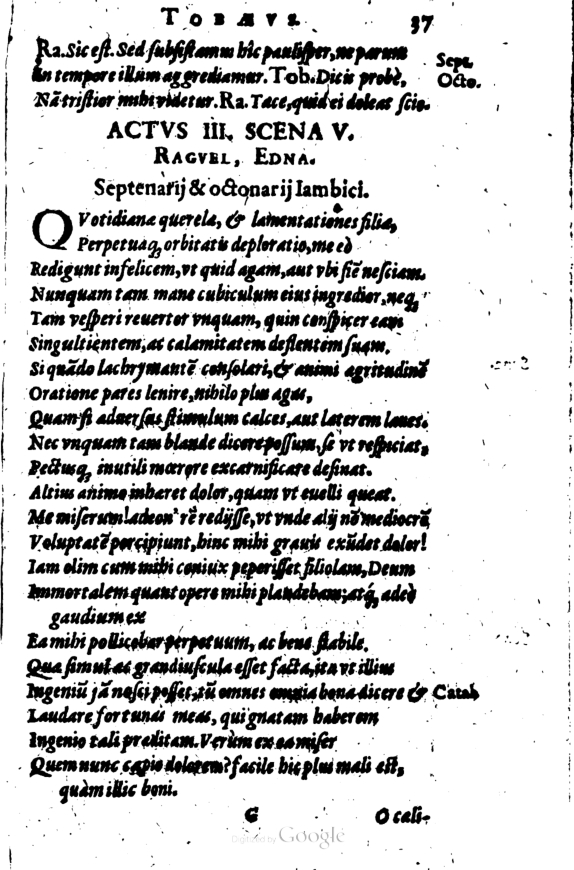 TOBÆVS. 37
Ra. Sic est. Sed subsistamus hîc paulisper, ne parum Sept.
In tempore illum aggrediamur. Tob. Dicis probè, Octo.
Nā tristior mihi videtur. Ra. Tace, quid ei doleat scio.
ACTVS III. SCENA V.
RAGVEL, EDNA.
Septenarij & octonarij Iambici.
QVotidiana querela, & lamentationes filiæ,
Perpetuaq́; orbitatis deploratio, me eò
Redigunt infelicem, vt quid agam, aut vbi siē nesciam.
Nunquam tam mane cubiculum eius ingredior, neq́;
Tam vesperi reuertor vnquam, quin conspicer eam
Singultientem, ac calamitatem deflentem suam.
Si quādo lachrymantē consolari, & animi ægritudinē
Oratione pares lenire, nihilo plus agas,
Quam si aduersus stimulum calces, aut laterem laues.
Nec vnquam tam blande dicere possum, se vt respiciat,
Pectusq́; inutili mœrore excarnificare desinat.
Altius animo inhæret dolor, quam vt euelli queat.
Me miserum! adeon' rē redijsse, vt vnde alij nō mediocrē
Voluptatē percipiunt, hinc mihi grauis exūdet dolor!
Iam olim cum mihi coniux peperisset filiolam, Deum
Immortalem quantopere mihi plaudebam; atq́; adeò
gaudium ex
Ea mihi pollicebar perpetuum, ac bene stabile.
Quæ simul ac grandiuscula esset facta, ita vt illius
Ingeniū jā nosci posset, tū omnes omnia bona dicere & Catal.
Laudare fortunas meas, qui gnatam haberem
Ingenio tali præditam. Verùm ex ea miser
Quem nunc capio dolorem? facile hic plus mali est,
quàm illic boni.
G O cali-
Digitized by Google